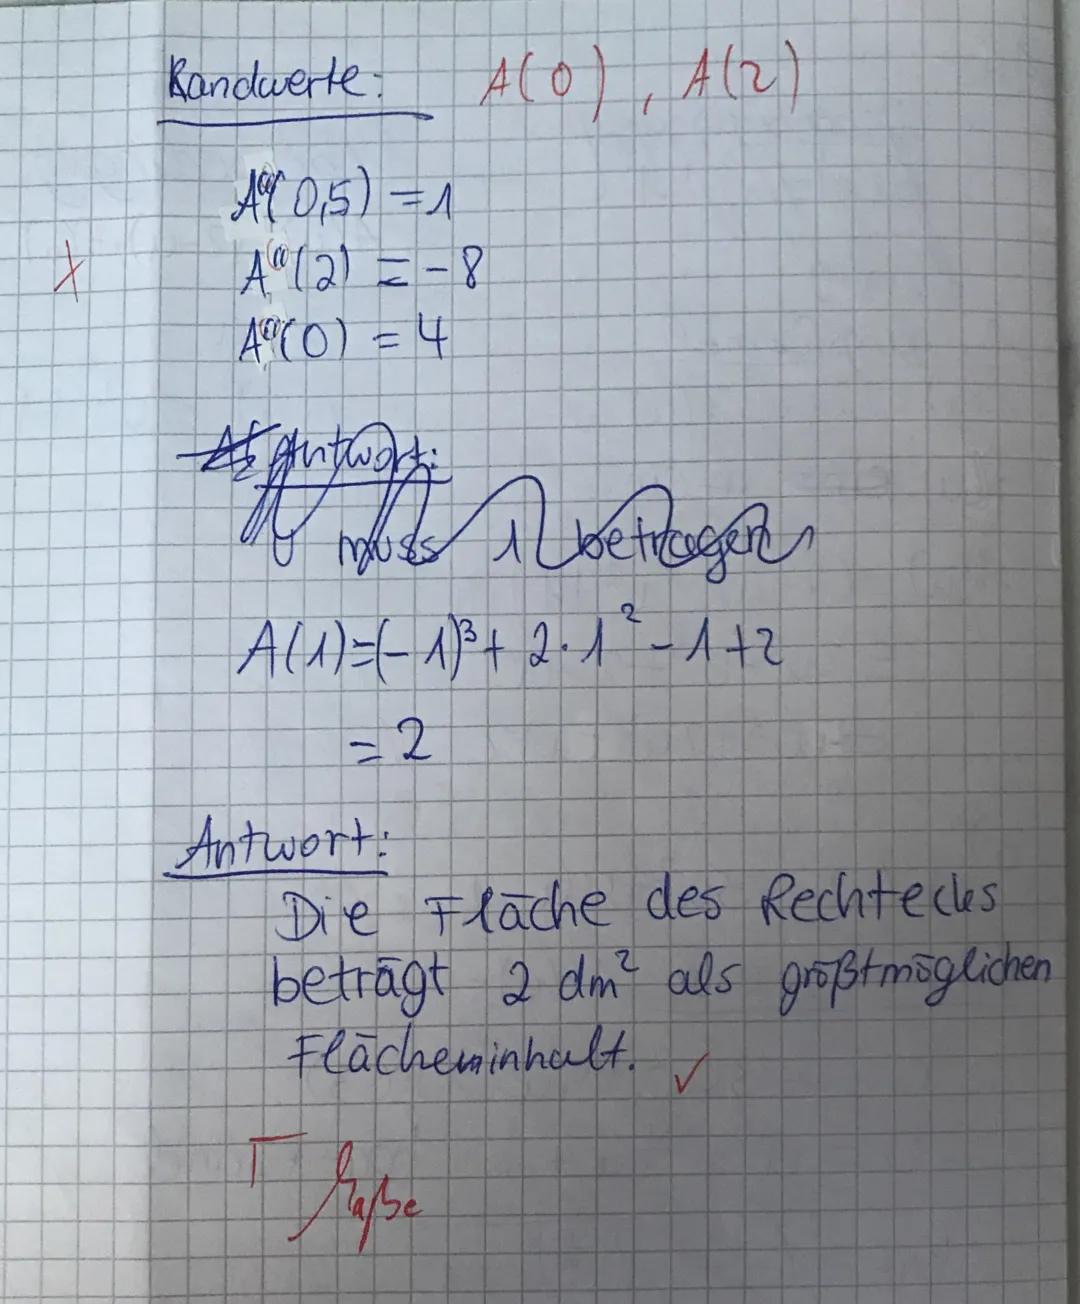 Randwerte: A(0), A(2)
A''(0,5) = 1
A''(2) = -8
A''(0) = 4
Antwort:
muss 1 betragen
A(1)=(-1)³+ 2·1² -1+2
= 2
Antwort:
Die Fläche des Rechtecks
beträgt 2 dm² als größtmöglichen
Flächeninhalt. ✓